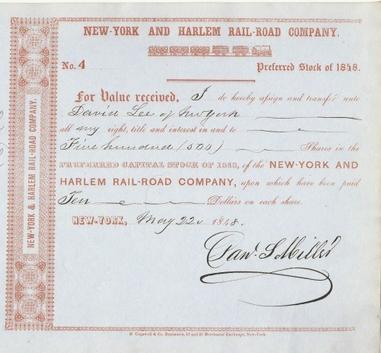 NEW-YORK AND HARLEM RAIL-ROAD COMPANY.
No. 4 Preferred Stock of 1848.
For Value received, I do hereby assign and transfer unto
David Lee of New York
all my right, title and interest in and to
Five hundred (500) Shares in the
PREFERRED CAPITAL STOCK OF 1848, of the NEW-YORK AND
HARLEM RAIL-ROAD COMPANY, upon which have been paid
Ten Dollars on each share.
NEW-YORK, May 22 1848.
S. Miller
NEW-YORK & HARLEM RAIL-ROAD COMPANY.
New-York